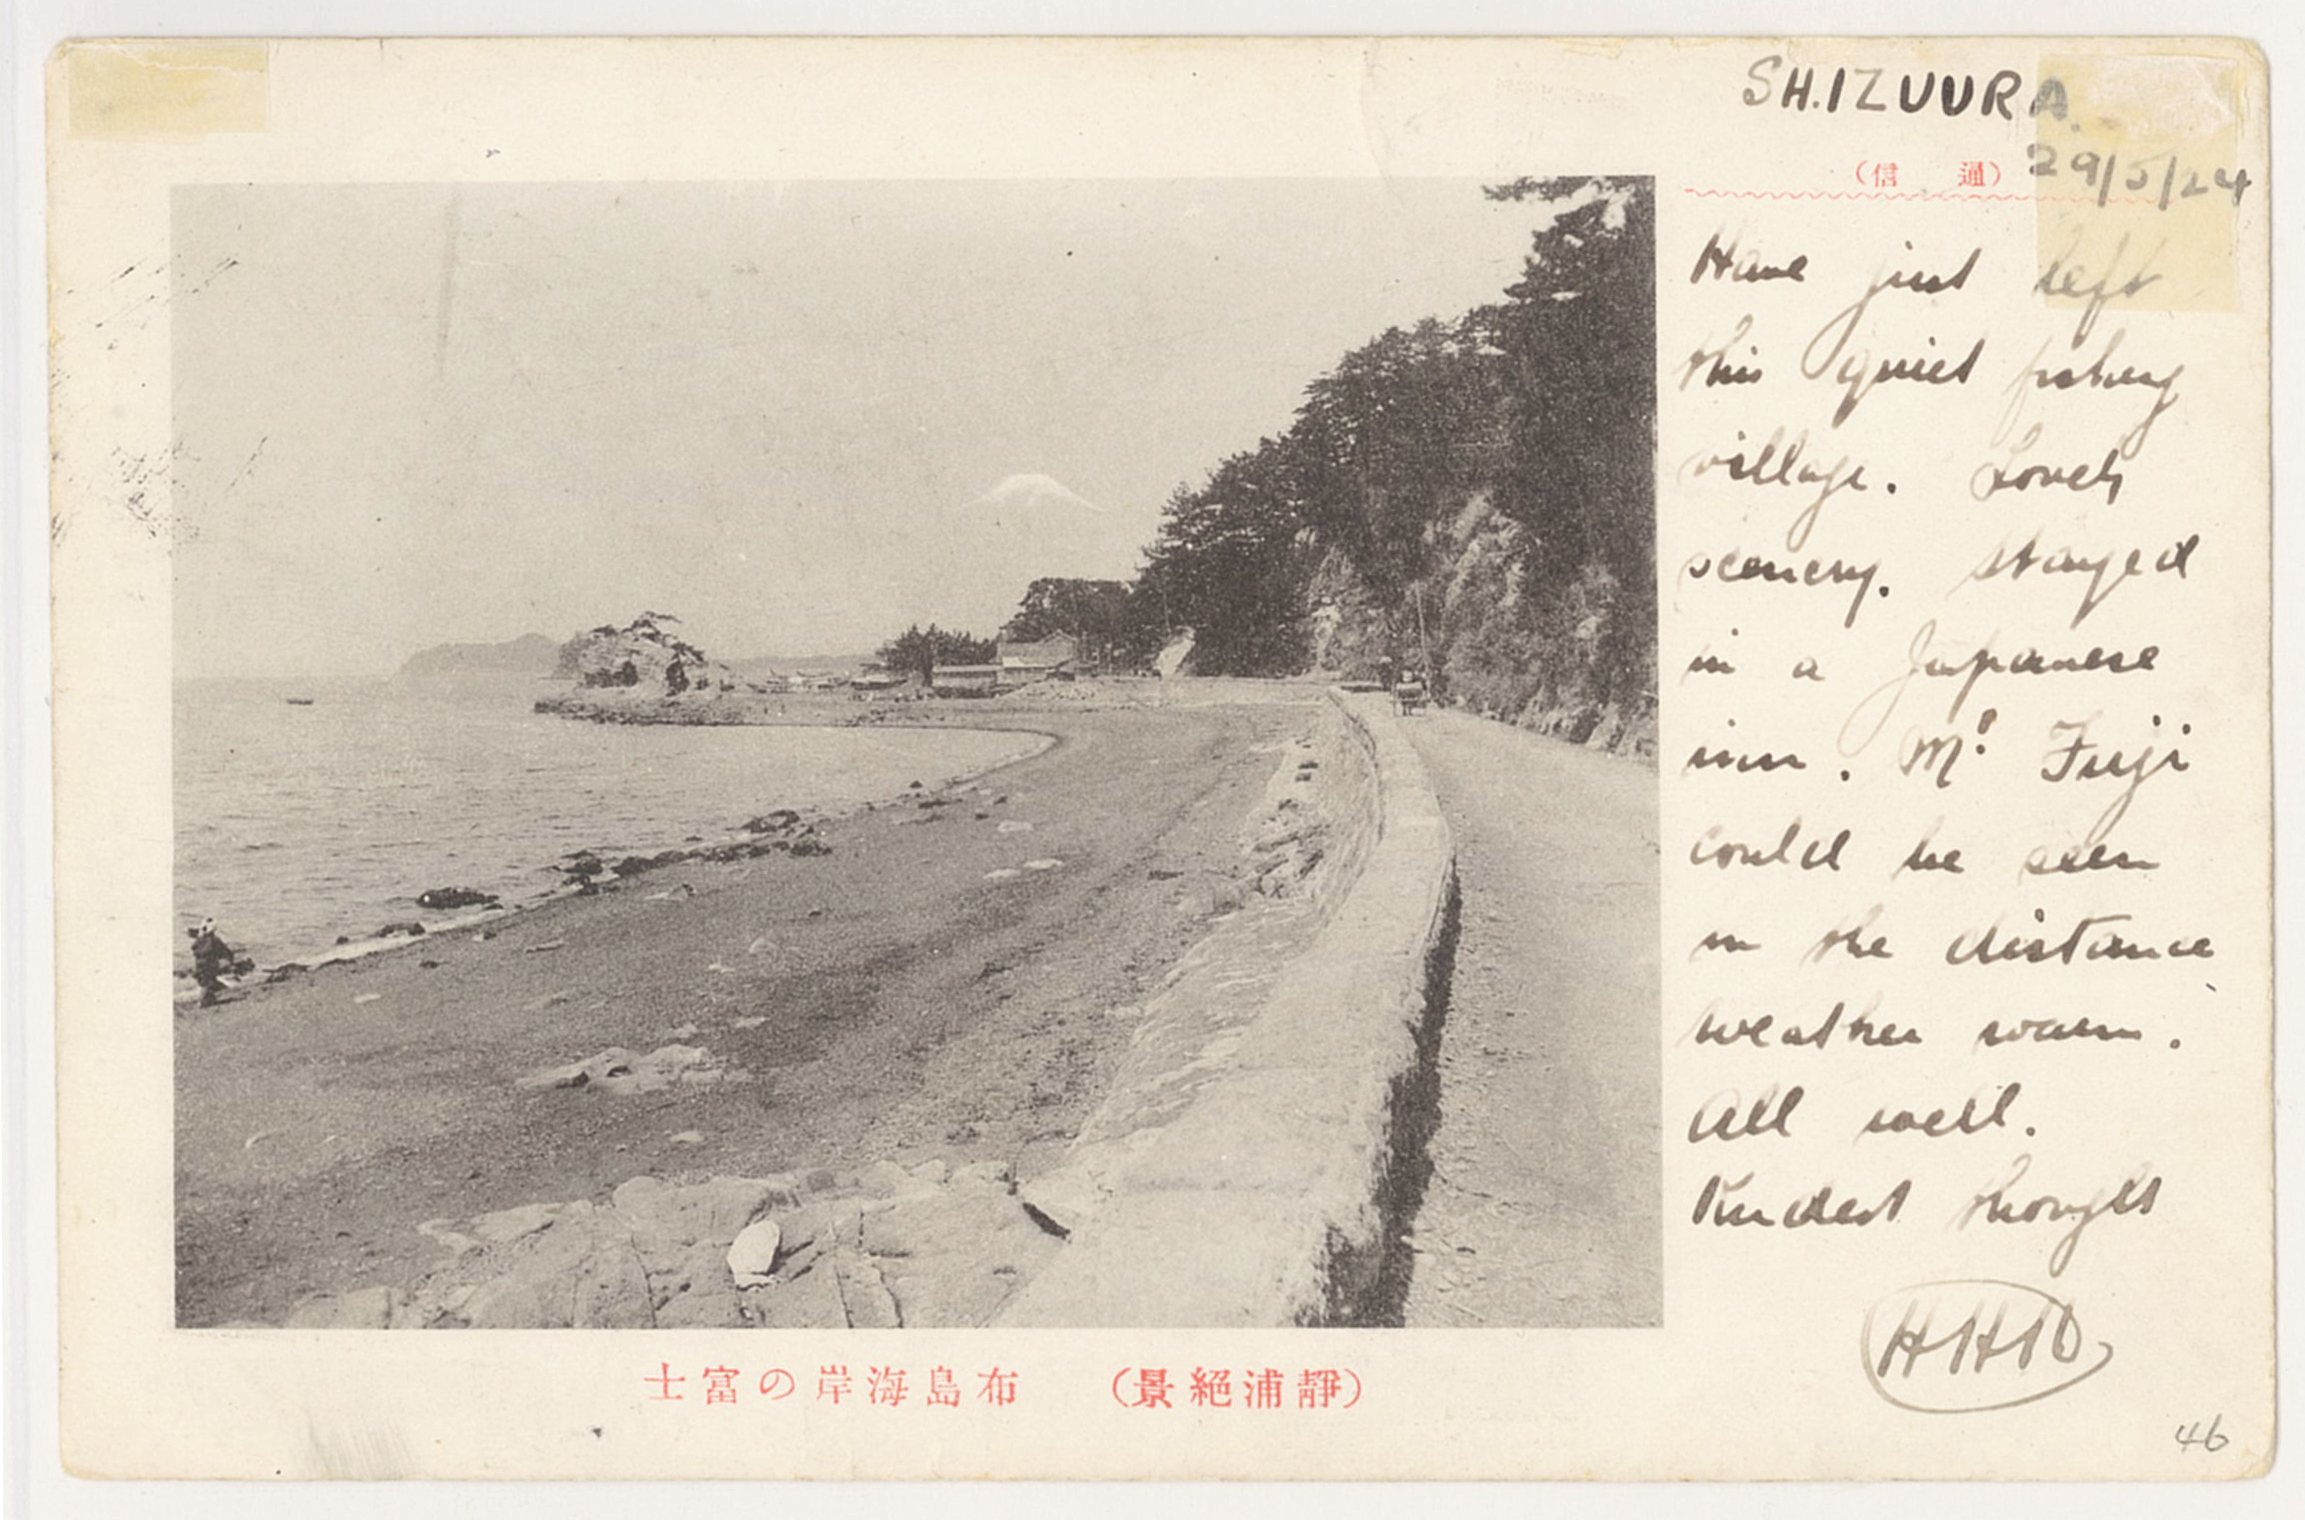 SHIZUURA.
29/5/24
（通信）
Have just left
this quiet fishing
village. Lovely
scenery. Stayed
in a Japanese
inn. Mt Fuji
could be seen
in the distance
weather warm.
All well.
Kindest thoughts
（靜浦絶景）　布島海岸の富士
46